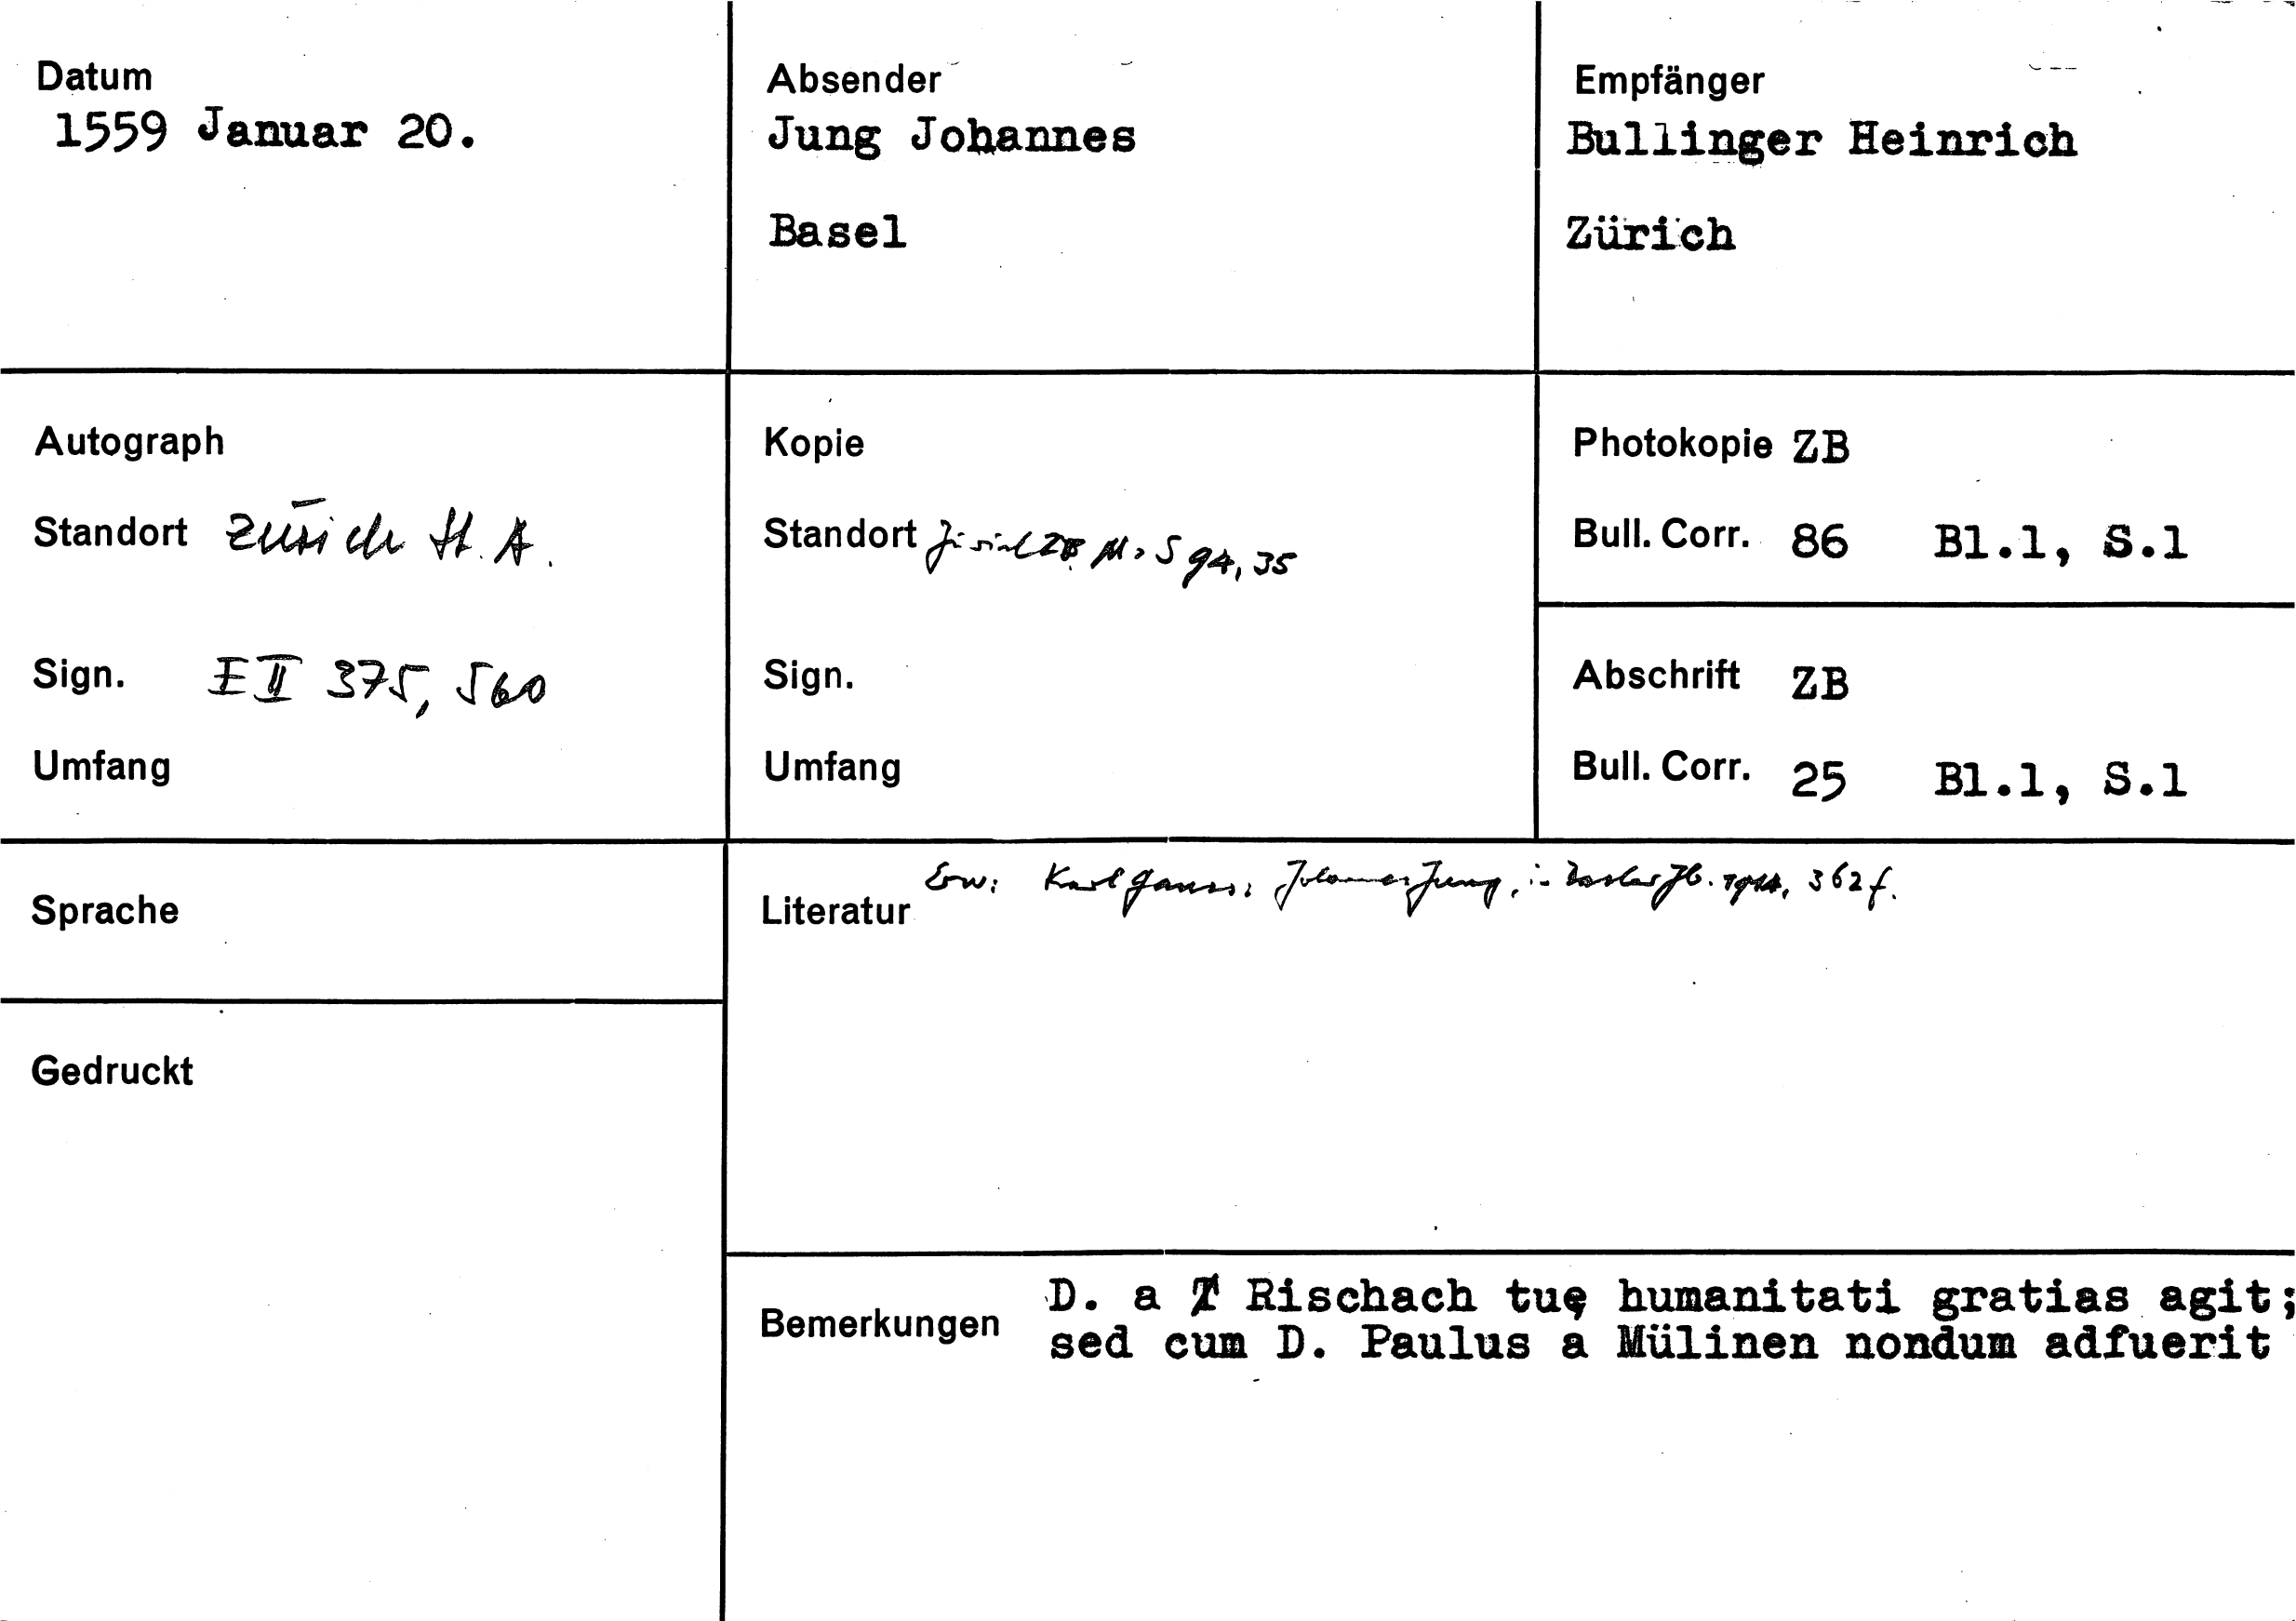 Datum
1559 Januar 20.
Absender
Jung Johannes
Basel
Empfänger
Bullinger Heinrich
Zürich
Autograph
Standort Zürich StA.
Sign. E II 375, 560
Umfang
Kopie
Standort Zürich ZB. Ms S 94, 35
Sign.
Umfang
Photokopie ZB
Bull. Corr. 86 Bl.1, S.1
Abschrift ZB
Bull. Corr. 25 Bl.1, S.1
Sprache
Literatur Erw: Karl Gauss: Johannes Jung, in Basler Jb. 362f.
Gedruckt
Bemerkungen D. a Rischach tuę humanitati gratias agit;
sed cum D. Paulus a Mülinen nondum adfuerit